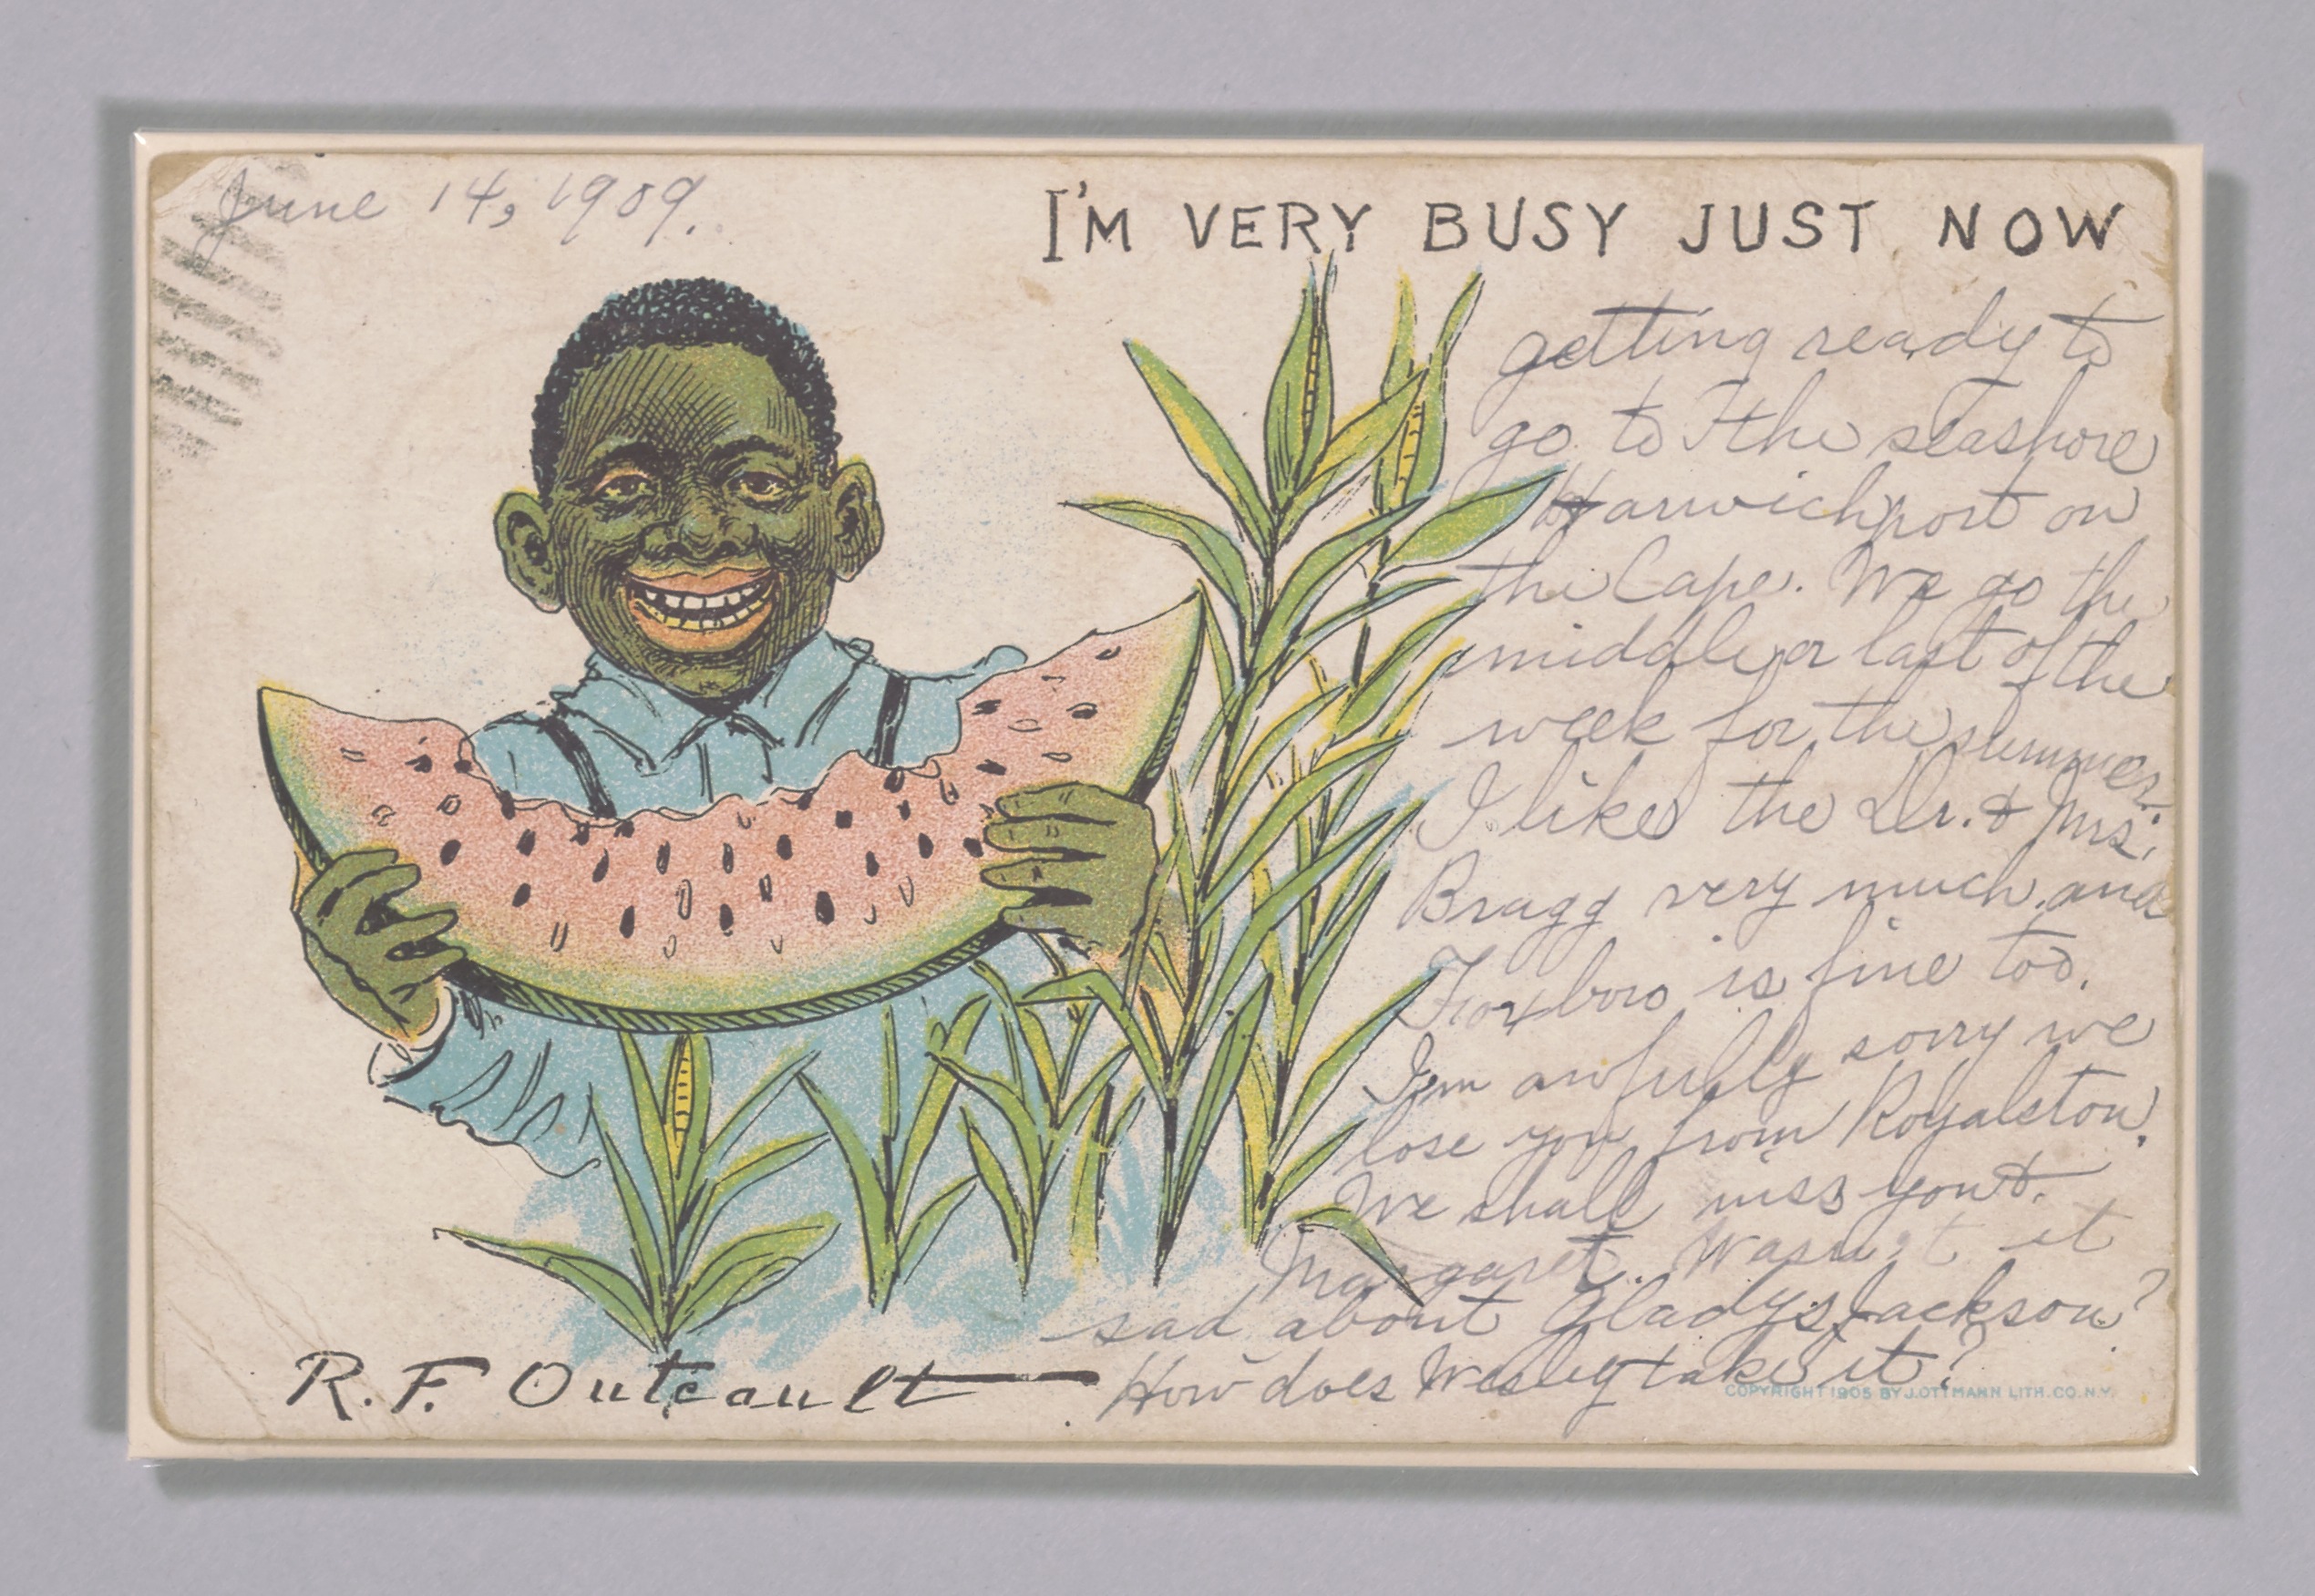 June 14, 1909.
I'M VERY BUSY JUST NOW
getting ready to
go to the seashore
Harwichport on
the Cape. We go the
middle or last of the
week for the summer.
I like the Dr. & Mrs.
Bragg very much and
Foxboro is fine too.
I'm awfully sorry we
lose you from Royalston.
We shall miss you
Margaret. Wasn't it
sad about Gladys Jackson?
How does Wesley take it?
R. F. Outcault
COPYRIGHT 1905 BY J. OTTMANN LITH. CO. N.Y.